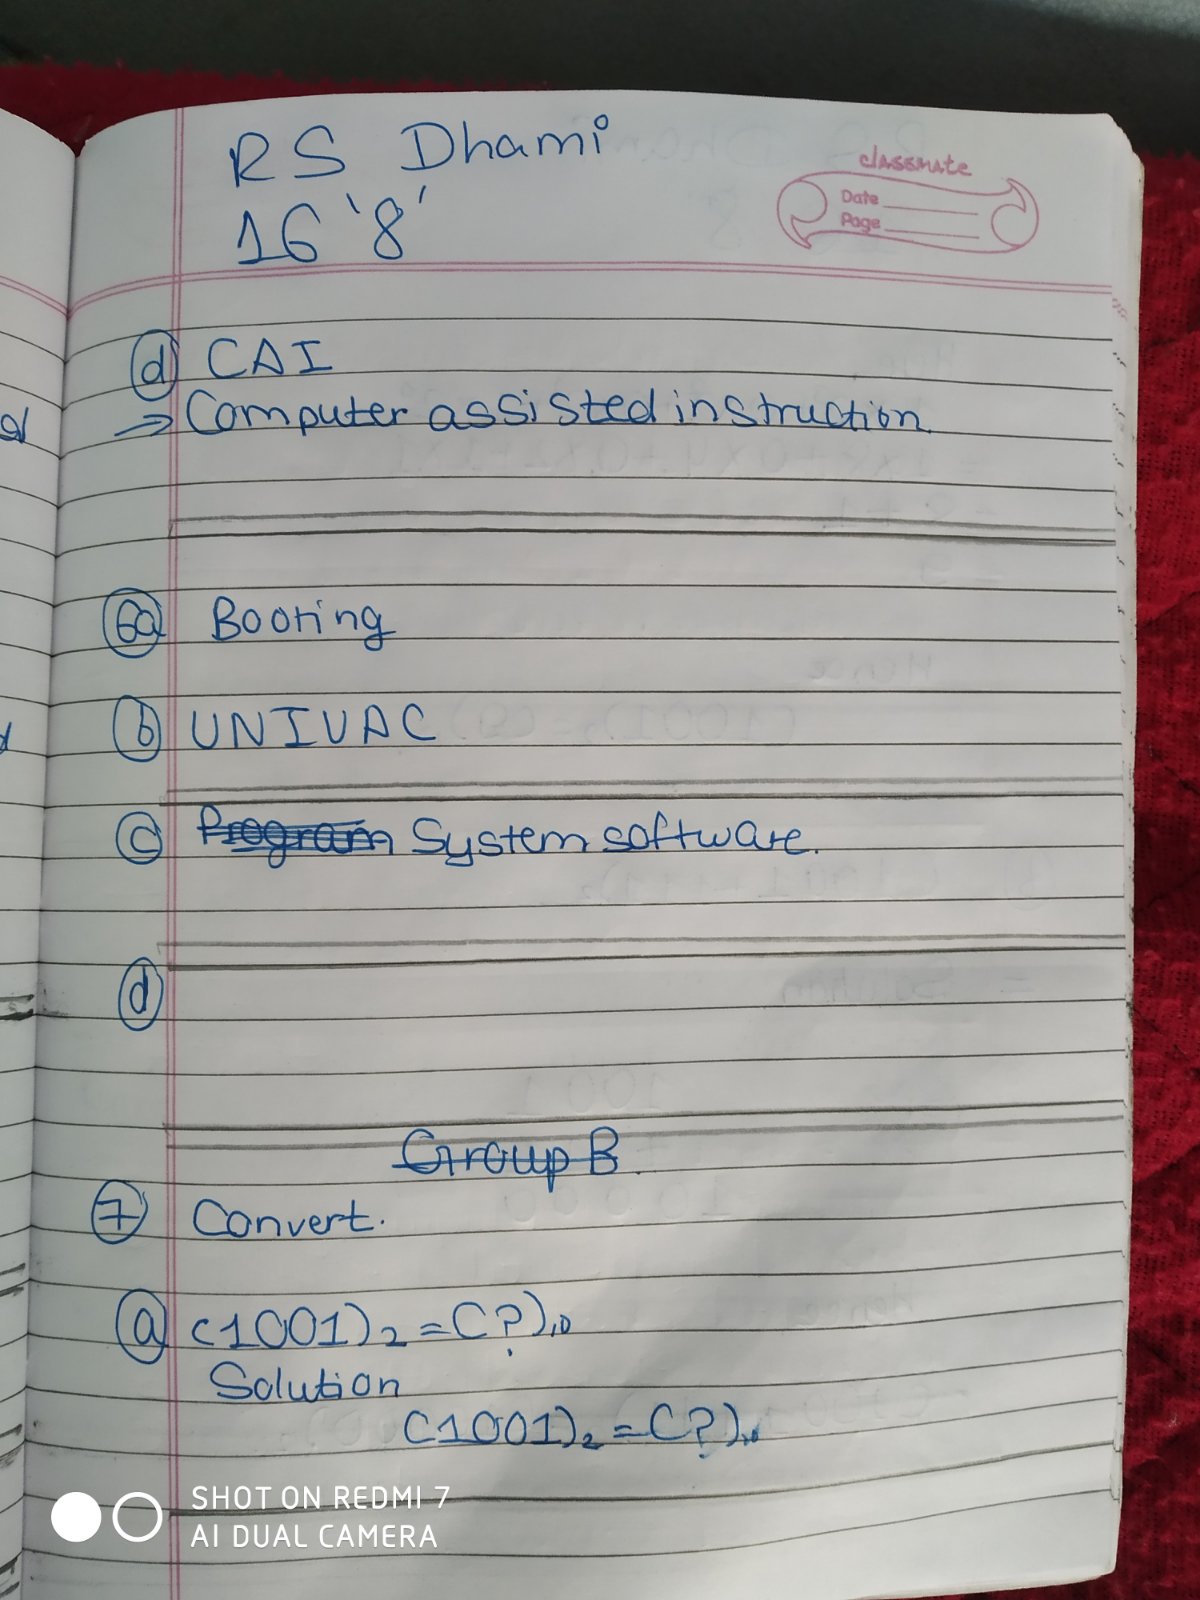 RS Dhami
16 '8'
classmate
Date
Page
d CAI
→ Computer assisted instruction
6a Booting
b UNIVAC
c Program System software.
d
Group B
7 Convert.
a (1001)2 = (?)10
Solution
(1001)2 = (?)10
SHOT ON REDMI 7
AI DUAL CAMERA